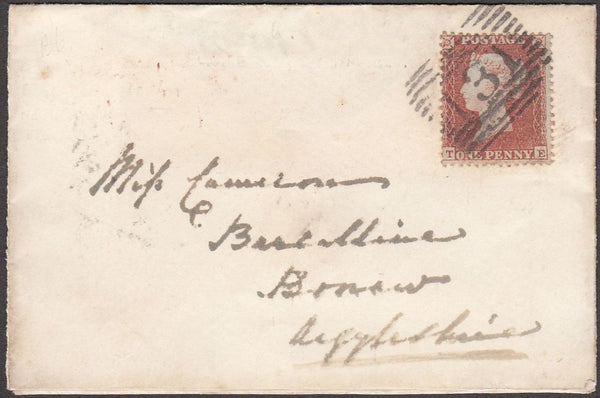 POSTAGE
3
T ONE PENNY E
Miss Cameron
Barcaldine
Bonaw
Argyleshire